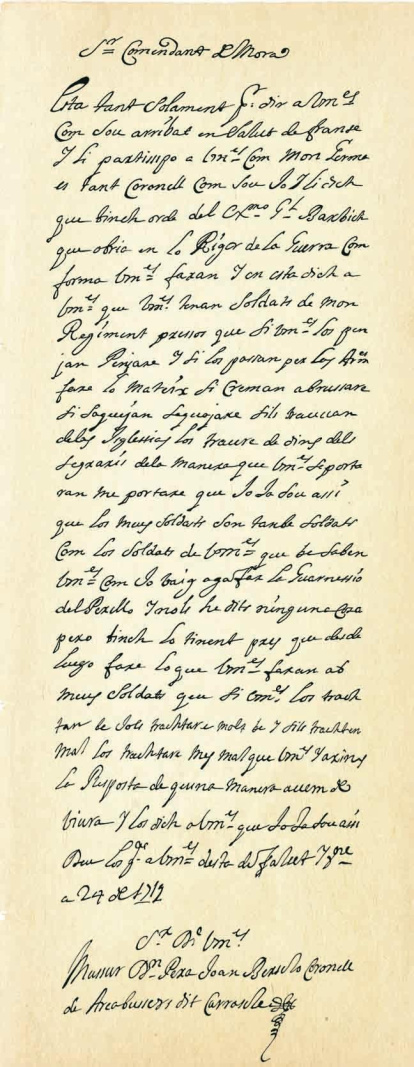 Sr Comendant de Mora
Esta tant Solament pr. dir a Vmes
Com Sou arribat en Salut de franse
Y li partisipo a Vmes Com Mon Germa
es tant Coronell Com Sou Jo Y li dich
que tinch orde del Exmo Gl Barbich
que obria en lo Rigor de la Guerra Com
forma Vmes faran Y en esta dich a
Vmes que Vmes tenan Soldats de mon
Regiment pressos que Si Vmes los pen
jan Penjare Y Si los passan per les Armes
fare lo Mateix Si Creman abrussare
Si Saquejan Saquejare Sils trauran
deles Yglesies los traure de dins dels
Segraris dela Manera que Vmes Se porta
ran me portare que Jo Ja Sou assi
que los meus Soldats Son tanbe Soldats
Com los Soldats de Vmes que be Saben
Vmes Com Jo vaig agaffar la Guarnessio
del Perello Y nols he dits ninguna Cosa
pero tinch lo tinent pres que desde
luego fare lo que Vmes faran ab
meus Soldats que Si Vmes los trach
tan be Jols trachtare molt be Y Sils trachten
mal los trachtare mes mal que Vmes Y
la Resposta de quina manera avem de
viura Y los dich a Vmes que Jo Ja Sou assi
Deu los gde a Vmes desta de Falset Y
a 24 de 1712
Sr De Vmes
Mussur Dn Pera Joan Barselo Coronell
de Arcabussers dit Carrasclet